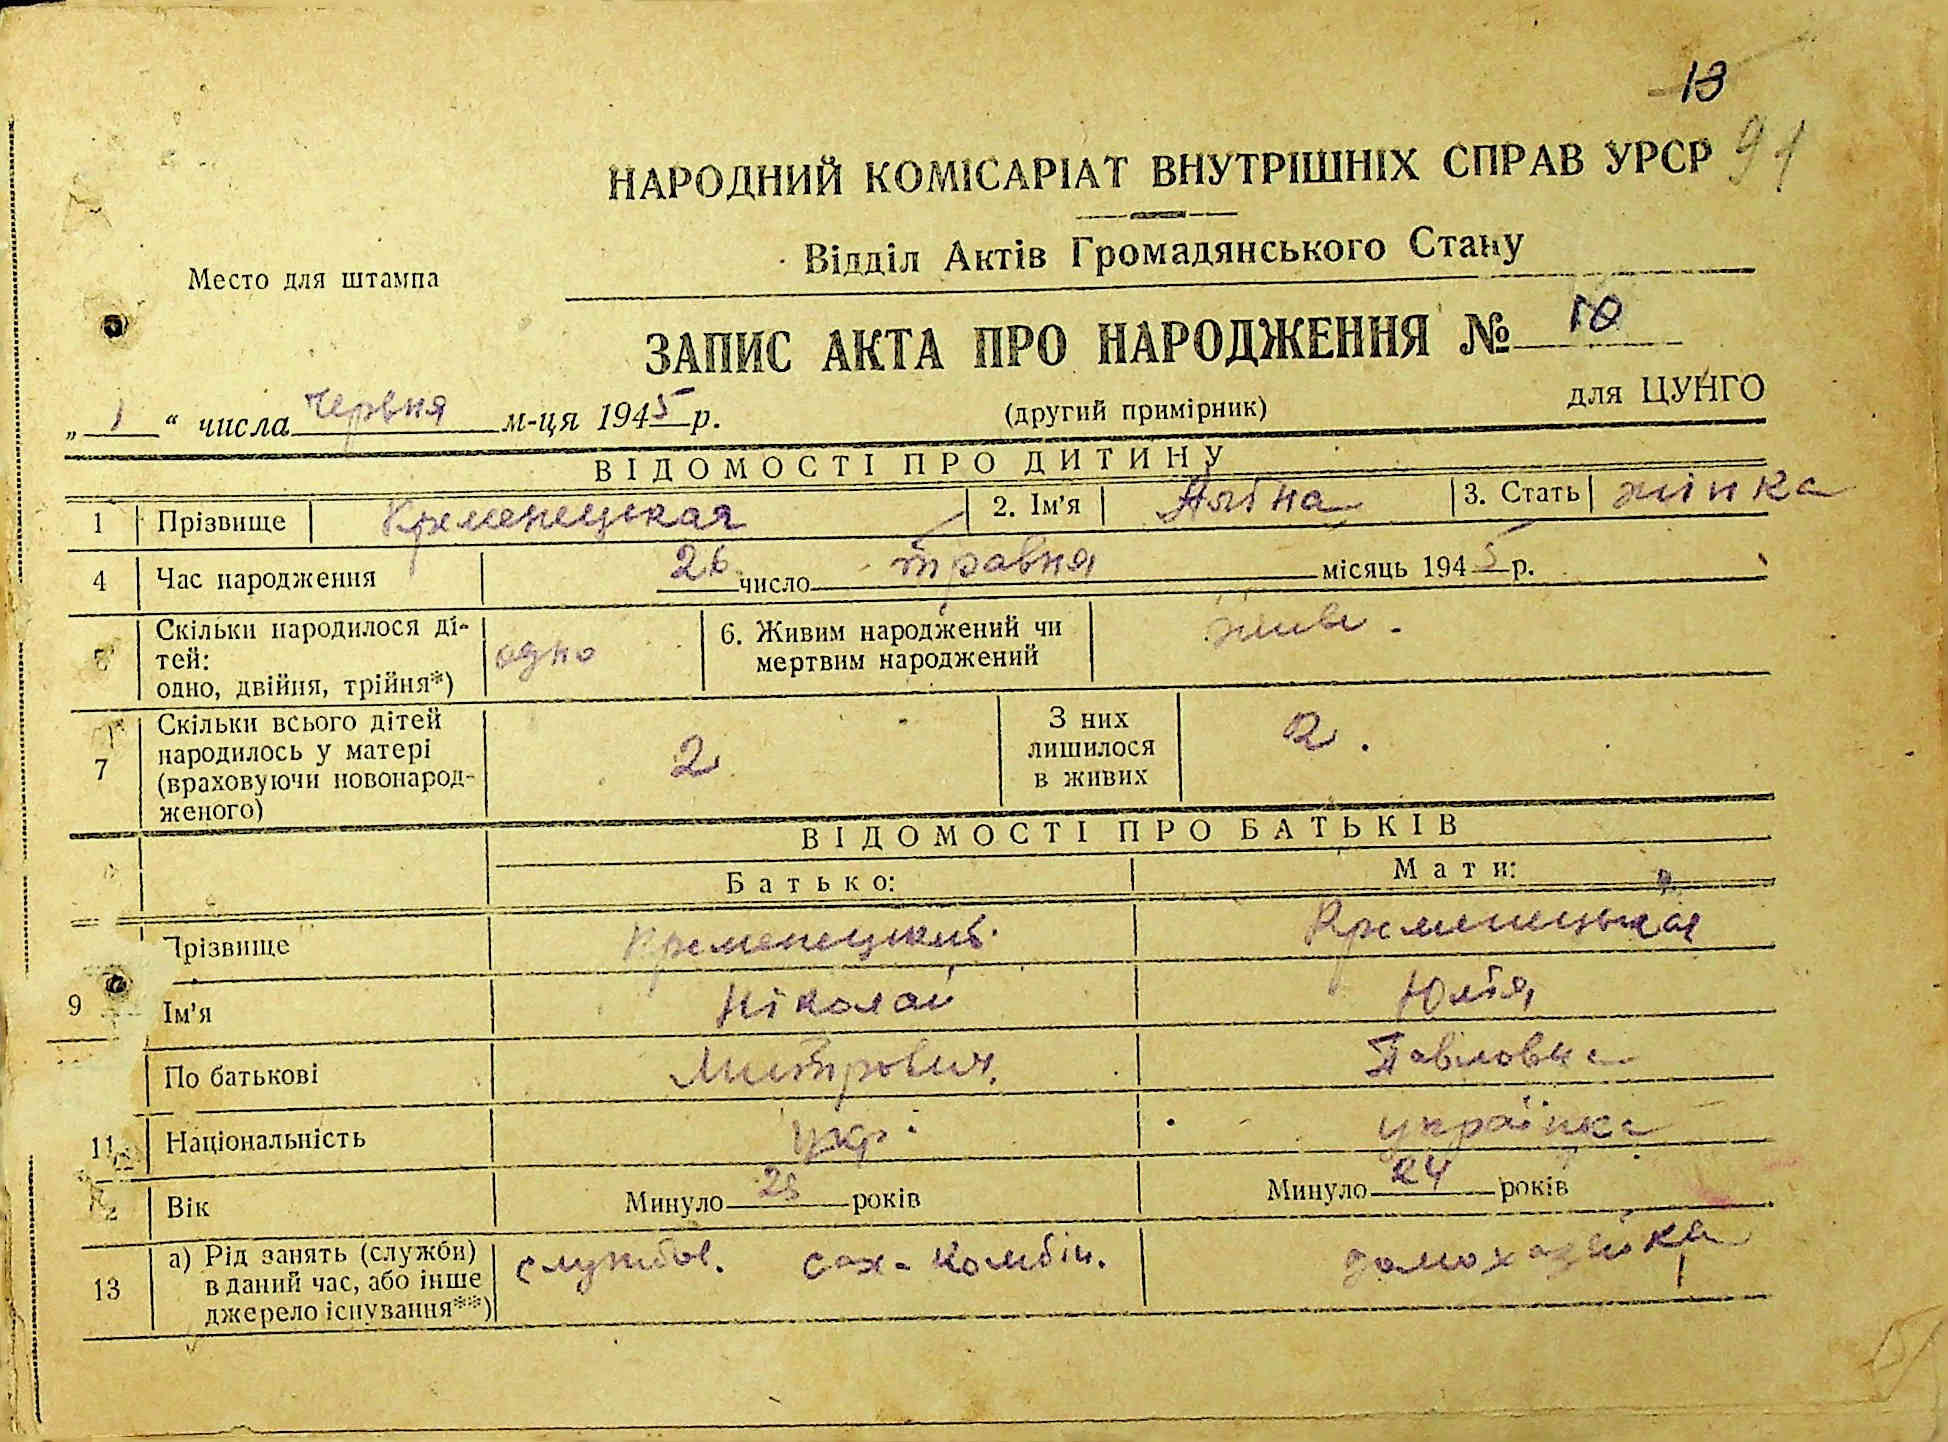 13
91
НАРОДНИЙ КОМІСАРІАТ ВНУТРІШНІХ СПРАВ УРСР
Відділ Актів Громадянського Стану
Место для штампа
ЗАПИС АКТА ПРО НАРОДЖЕННЯ № 10
„ 1 “ числа червня м-ця 1945 р.
(другий примірник)
для ЦУНГО
ВІДОМОСТІ ПРО ДИТИНУ
1 Прізвище Кременецкая 2. Ім'я 3. Стать жінка
4 Час народження 26 число травня місяць 1945 р.
5 Скільки народилося ді-
тей:
одно, двійня, трійня*) одно 6. Живим народжений чи
мертвим народжений живе.
7 Скільки всього дітей
народилось у матері
(враховуючи новонарод-
женого) 2 З них
лишилося
в живих 2.
ВІДОМОСТІ ПРО БАТЬКІВ
Батько: Мати:
Прізвище Кременецкий Кременецькая
9 Ім'я Ніколай Юлія
По батькові Митрович Павловна
11 Національність укр. українка
Вік Минуло років Минуло 24 років
13 а) Рід занять (служби)
в даний час, або інше
джерело існування**) службов. сах-комбін. домохазяйка